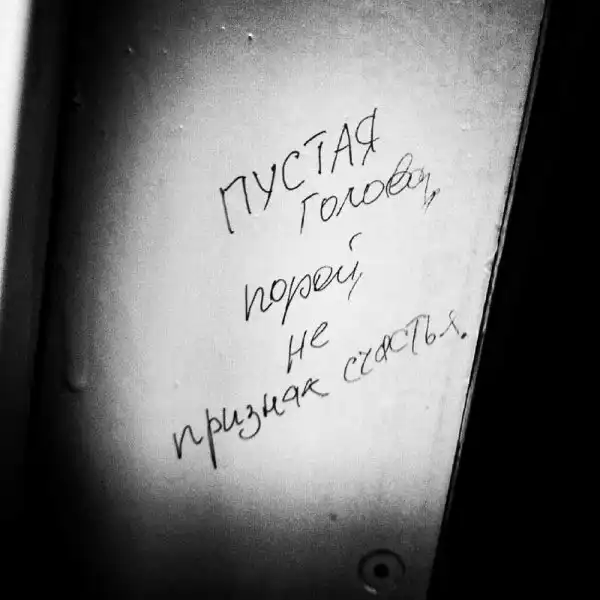 ПУСТАЯ
голова,
порой,
не
признак счастья.